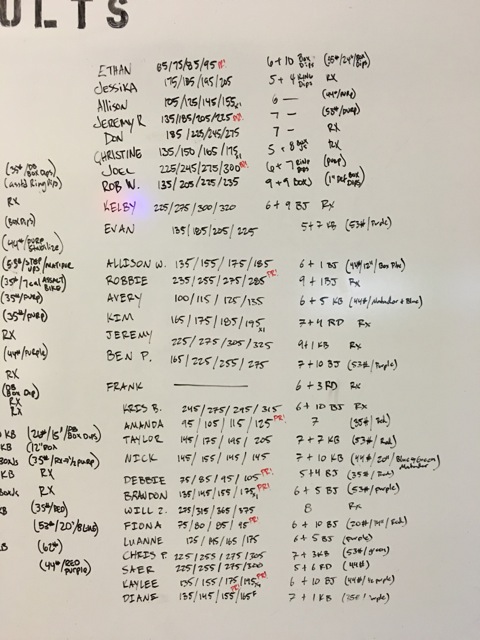 ULTS
ETHAN 65/75/85/95 PR! 6+10 Box Dips (35#/24"/Box Dips)
JESSIKA 175/185/195/205 5+4 RING Dips RX
Allison 105/125/145/155 6 — (44#/PURP)
JEREMY R 135/185/205/225 PR! 7 — (53#/PURP)
DON 185/225/245/275 7 — RX
CHRISTINE 135/150/165/175 x1 5+8 RX
JOEL 225/245/275/300 PR! 6+7 RING Dips (PURP)
ROB W. 135/205/225/235 9+9 BOXJ (1" Def Box Dips)
KELBY 225/275/300/320 6+9 BJ RX
EVAN 135/185/205/225 5+7 KB (53#/Purple)
ALLISON W. 135/155/175/185 6+1 BJ (44#/12"/Box)
ROBBIE 235/255/275/285 PR! 9+1 BJ RX
AVERY 100/115/125/135 6+5 KB (44#/Matador+Blue)
KIM 165/175/185/195 x1 7+4 RD Rx
JEREMY 225/275/305/325 9+1 KB Rx
BEN P. 165/225/255/275 7+10 BJ (53#/Purple)
FRANK ——— 6+3 RD Rx
KRIS B. 245/275/295/315 6+10 BJ Rx
AMANDA 95/105/115/125 PR! 7 (35#/Red)
TAYLOR 145/175/195/205 7+7 KB (53#/Red)
NICK 145/155/145/145 7+10 KB (44#/20" Blue+Green Matador)
DEBBIE 75/85/95/105 PR! 5+4 BJ (35#/Red)
BRANDON 135/145/155/175 PR! x1 6+5 BJ (53#/purple)
WILL Z. 225/315/365/375 8 Rx
FIONA 75/80/85/95 PR! 6+10 BJ (20#/14"/Red)
LUANNE 6+5 BJ (purple)
CHRIS P. 225/255/275/305 7+3KB (53#/green)
SAER 225/255/275/300 5+6 RD (44#)
KAYLEE 135/155/175/195 PR! 6+10 BJ (44#/½ purple)
DIANE 135/145/155 PR!/165F 7+1 KB (35#/Purple)
(35#/DB Box Dips)
(asstd Ring Dips)
RX
(Box Dips)
(44#/PURP Stabilize)
(53#/STEP UPS/MATADOR)
(35#/7cal ASSAULT BIKE)
(35#/PURP)
(35#/PURP)
RX
(44#/purple)
RX
(DB Box Dip)
RX
RX
KB (26#/15"/Box Dips)
KB (12" BOX
(35#/RX→½ PURP)
KB RX
RX
(35#/RED)
(53#/20"/BLUE)
KB (62#)
(44#/RED purple)